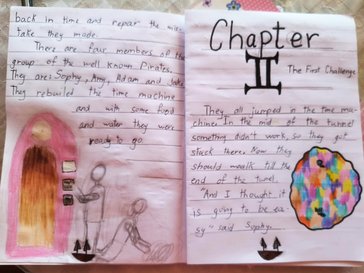 back in time and repar the mis-
take they made.
There are four members of the
group of the well known Pirates.
They are: Sophy, Amy, Adam and
They rebuiled the time machine
and with some food
and water they were
ready to go.
Chapter
II
The First Challenge
They all jumped in the time ma-
chine. In the mid of the tunnel
something didn't work, so they got
stuck there. Now they
should waalk till the
end of the tunel.
"And I thought it
is going to be ea-
sy" said Sophy.